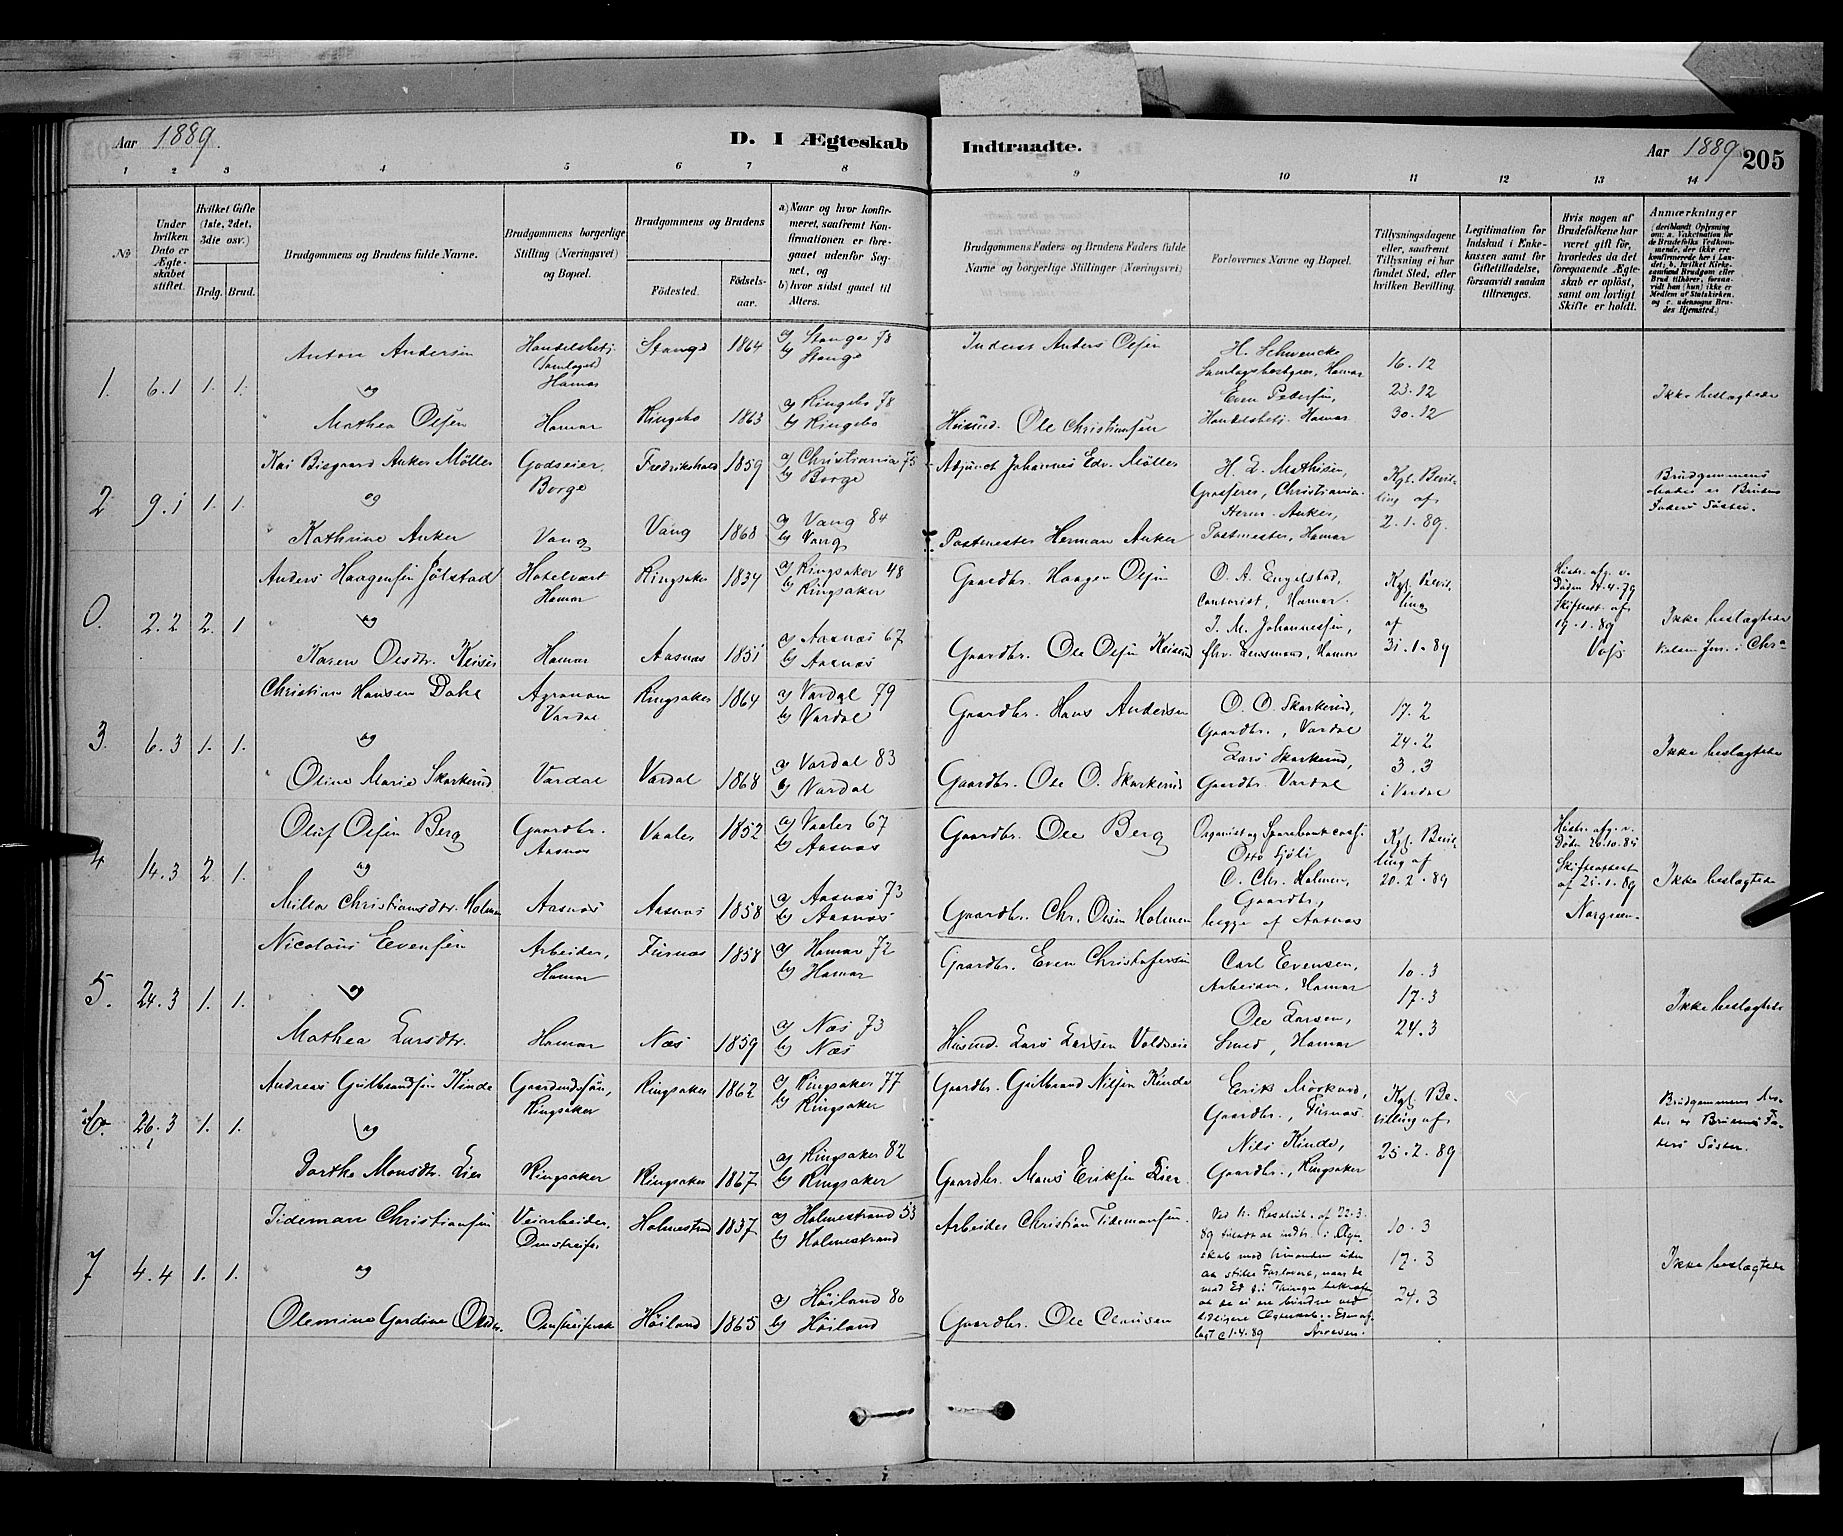 Aar 1889.
D. I Ægteskab Indtraadte.
Aar 1889 205
1 2 3 4 5 6 7 8 9 10 11 12 13 14
No
Under hvilken Dato er Ægteskabet stiftet.
Hvilket Gifte (1ste, 2det, 3die osv.)
Brdg. Brud.
Brudgommens og Brudens fulde Navne.
Brudgommens borgerlige Stilling (Næringsvei) og Bopæl.
Brudgommens og Brudens
Fødested. Fødselsaar.
a) Naar og hvor konfirmeret, saafremt Konfirmationen er foregaaet udenfor Sognet, og
b) hvor sidst gaaet til Alters.
Brudgommens Faders og Brudens Faders fulde Navne og borgerlige Stillinger (Næringsvei)
Forlovernes Navne og Bopæl.
Tillysningsdagene eller, saafremt Tillysning ei har fundet Sted, efter hvilken Bevilling.
Legitimation for Indskud i Enkekassen samt for Giftetilladelse, forsaavidt saadan tiltrænges.
Hvis nogen af Brudefolkene har været gift før, hvorledes da det foregaaende Ægteskab er opløst, samt om lovligt Skifte er holdt.
Anmærkninger (deriblandt Oplysning om: a. Vakcination for de Brudefolks Vedkommende, der ikke ere konfirmerede her i Landet; b. hvilket Kirkesamfund Brudgom eller Brud tilhører, forsaavidt han (hun) ikke er Medlem af Statskirken, og c. udensogns Brudes Hjemsted.)
1. 6.1 1. 1.
Anton Andersen
og
Mathea Olsen
Handelsbetj. (Samlaget) Hamar
Hamar
Stange 1864
Ringebo 1863
a) Stange 78
b) Stange
a) Ringebo 78
b) Ringebo
Inderst Anders Olsen
Husmd. Ole Christiansen
H. Schwencke
Samlagsbestyrer, Hamar
Even Pedersen,
Handelsbetj. Hamar
16.12
23.12
30.12
Ikke beslægtede
2 9.1 1. 1.
Kai Bisgaard Anker Möller
og
Kathrine Anker
Godseier, Borge
Vang
Fredrikshald 1859
Vang 1868
a) Christiania 75
b) Borge
a) Vang 84
b) Vang
Adjunct Johannes Edv. Möller
Postmester Herman Anker
H. L. Mathisen,
Grosserer, Christiania.
Herm. Anker,
Postmester, Hamar
Kgl. Bevilling af
2.1.89.
Brudgommens
Moder er Brudens
Faders Søster.
0. 2.2 2. 1
Anders Haagensen Jølstad
og
Karen Olsdtr. Keiser
Hotelvært Hamar
Hamar
Ringsaker 1834
Aasnæs 1851
a) Ringsaker 48
b) Ringsaker
a) Aasnæs 67
b) Aasnæs
Gaardbr. Haagen Olsen
Gaardbr. Ole Olsen Keiserud
O. A. Engelstad,
Contorist, Hamar.
J. M. Johannessen,
fhv. Lensmand, Hamar
Kgl. Bevilling
af
31.1.89
Hustr. afg. v.
Døden 14.4.79
Skifteatt. af
17.1.89
Voss
Ikke beslægtede
3. 6.3 1. 1.
Christian Hansen Dahl
og
Oline Marie Skarkerud
Agronom Vardal
Vardal
Ringsaker 1864
Vardal 1868
a) Vardal 79
b) Vardal
a) Vardal 83
b) Vardal
Gaardbr. Hans Andersen
Gaardbr. Ole O. Skarkerud
O. O. Skarkerud,
Gaardbr., Vardal
Lars Skarkerud,
Gaardbr. Vardal
17.2
24.2
3.3
i Vardal
Ikke beslægtede
4 14.3 2. 1.
Oluf Olsen Berg
og
Milla Christiansdtr. Holmen
Gaardbr. Aasnæs
Aasnæs
Vaaler 1852
Aasnæs 1858
a) Vaaler 67
b) Aasnæs
a) Aasnæs 73
b) Aasnæs
Gaardbr. Ole Berg
Gaardbr. Chr. Olsen Holmen
Organist og Sparebankcass.
Otto Sjöli
C. Chr. Holmen,
Gaardbr.,
begge af Aasnæs
Kgl. Bevilling af
20.2.89
Hustr. afg. v.
Døden 26.10.85
Skifteattest
af 25.1.89
Ikke beslægtede
5. 24.3 1. 1.
Nicolaus Evensen
og
Mathea Larsdtr.
Arbeider, Hamar
Hamar
Furnæs 1858
Næs 1859
a) Hamar 72
b) Hamar
a) Næs 73
b) Næs
Gaardbr. Even Christofersen
Husmd. Lars Larsen Voldseie
Carl Evensen,
Arbeider, Hamar
Ole Larsen,
Smed, Hamar
10.3
17.3
24.3
Ikke beslægtede
6. 26.3 1. 1.
Andreas Gulbrandsen Kinde
og
Dorthe Monsdtr. Lier
Gaardmdssøn, Ringsaker
Ringsaker
Ringsaker 1862
Ringsaker 1867
a) Ringsaker 77
b) Ringsaker
a) Ringsaker 82
b) Ringsaker
Gaardbr. Gulbrand Nilsen Kinde
Gaardbr. Mons Eriksen Lier
Erik Mörkved,
Gaardbr., Furnæs
Nils Kinde,
Gaardbr., Ringsaker
Kgl. Bevilling af
25.2.89
Brudgommens Moder er Brudens Faders Søster.
7 4.4 1. 1.
Tideman Christiansen
og
Olemine Gardine Olsdtr.
Veiarbeider, Omstreifer
Omstreiferske
Holmestrand 1837
Höiland 1865
a) Holmestrand 53
b) Holmestrand
a) Höiland 80
b) Höiland
Arbeider Christian Tidemansen
Gaardbr. Ole Clausen
Ved k. Resolut. af 22.3.
89 tilladt at indtr. i Ægteskab med hinanden uden
at stille Forlovere, naar de
med Ed til Thinge bekræfte
at de ei ere bundne ved
tidligere Ægteskab. Eden aflagt 1.4.89
10.3
17.3
24.3
Ikke beslægtede